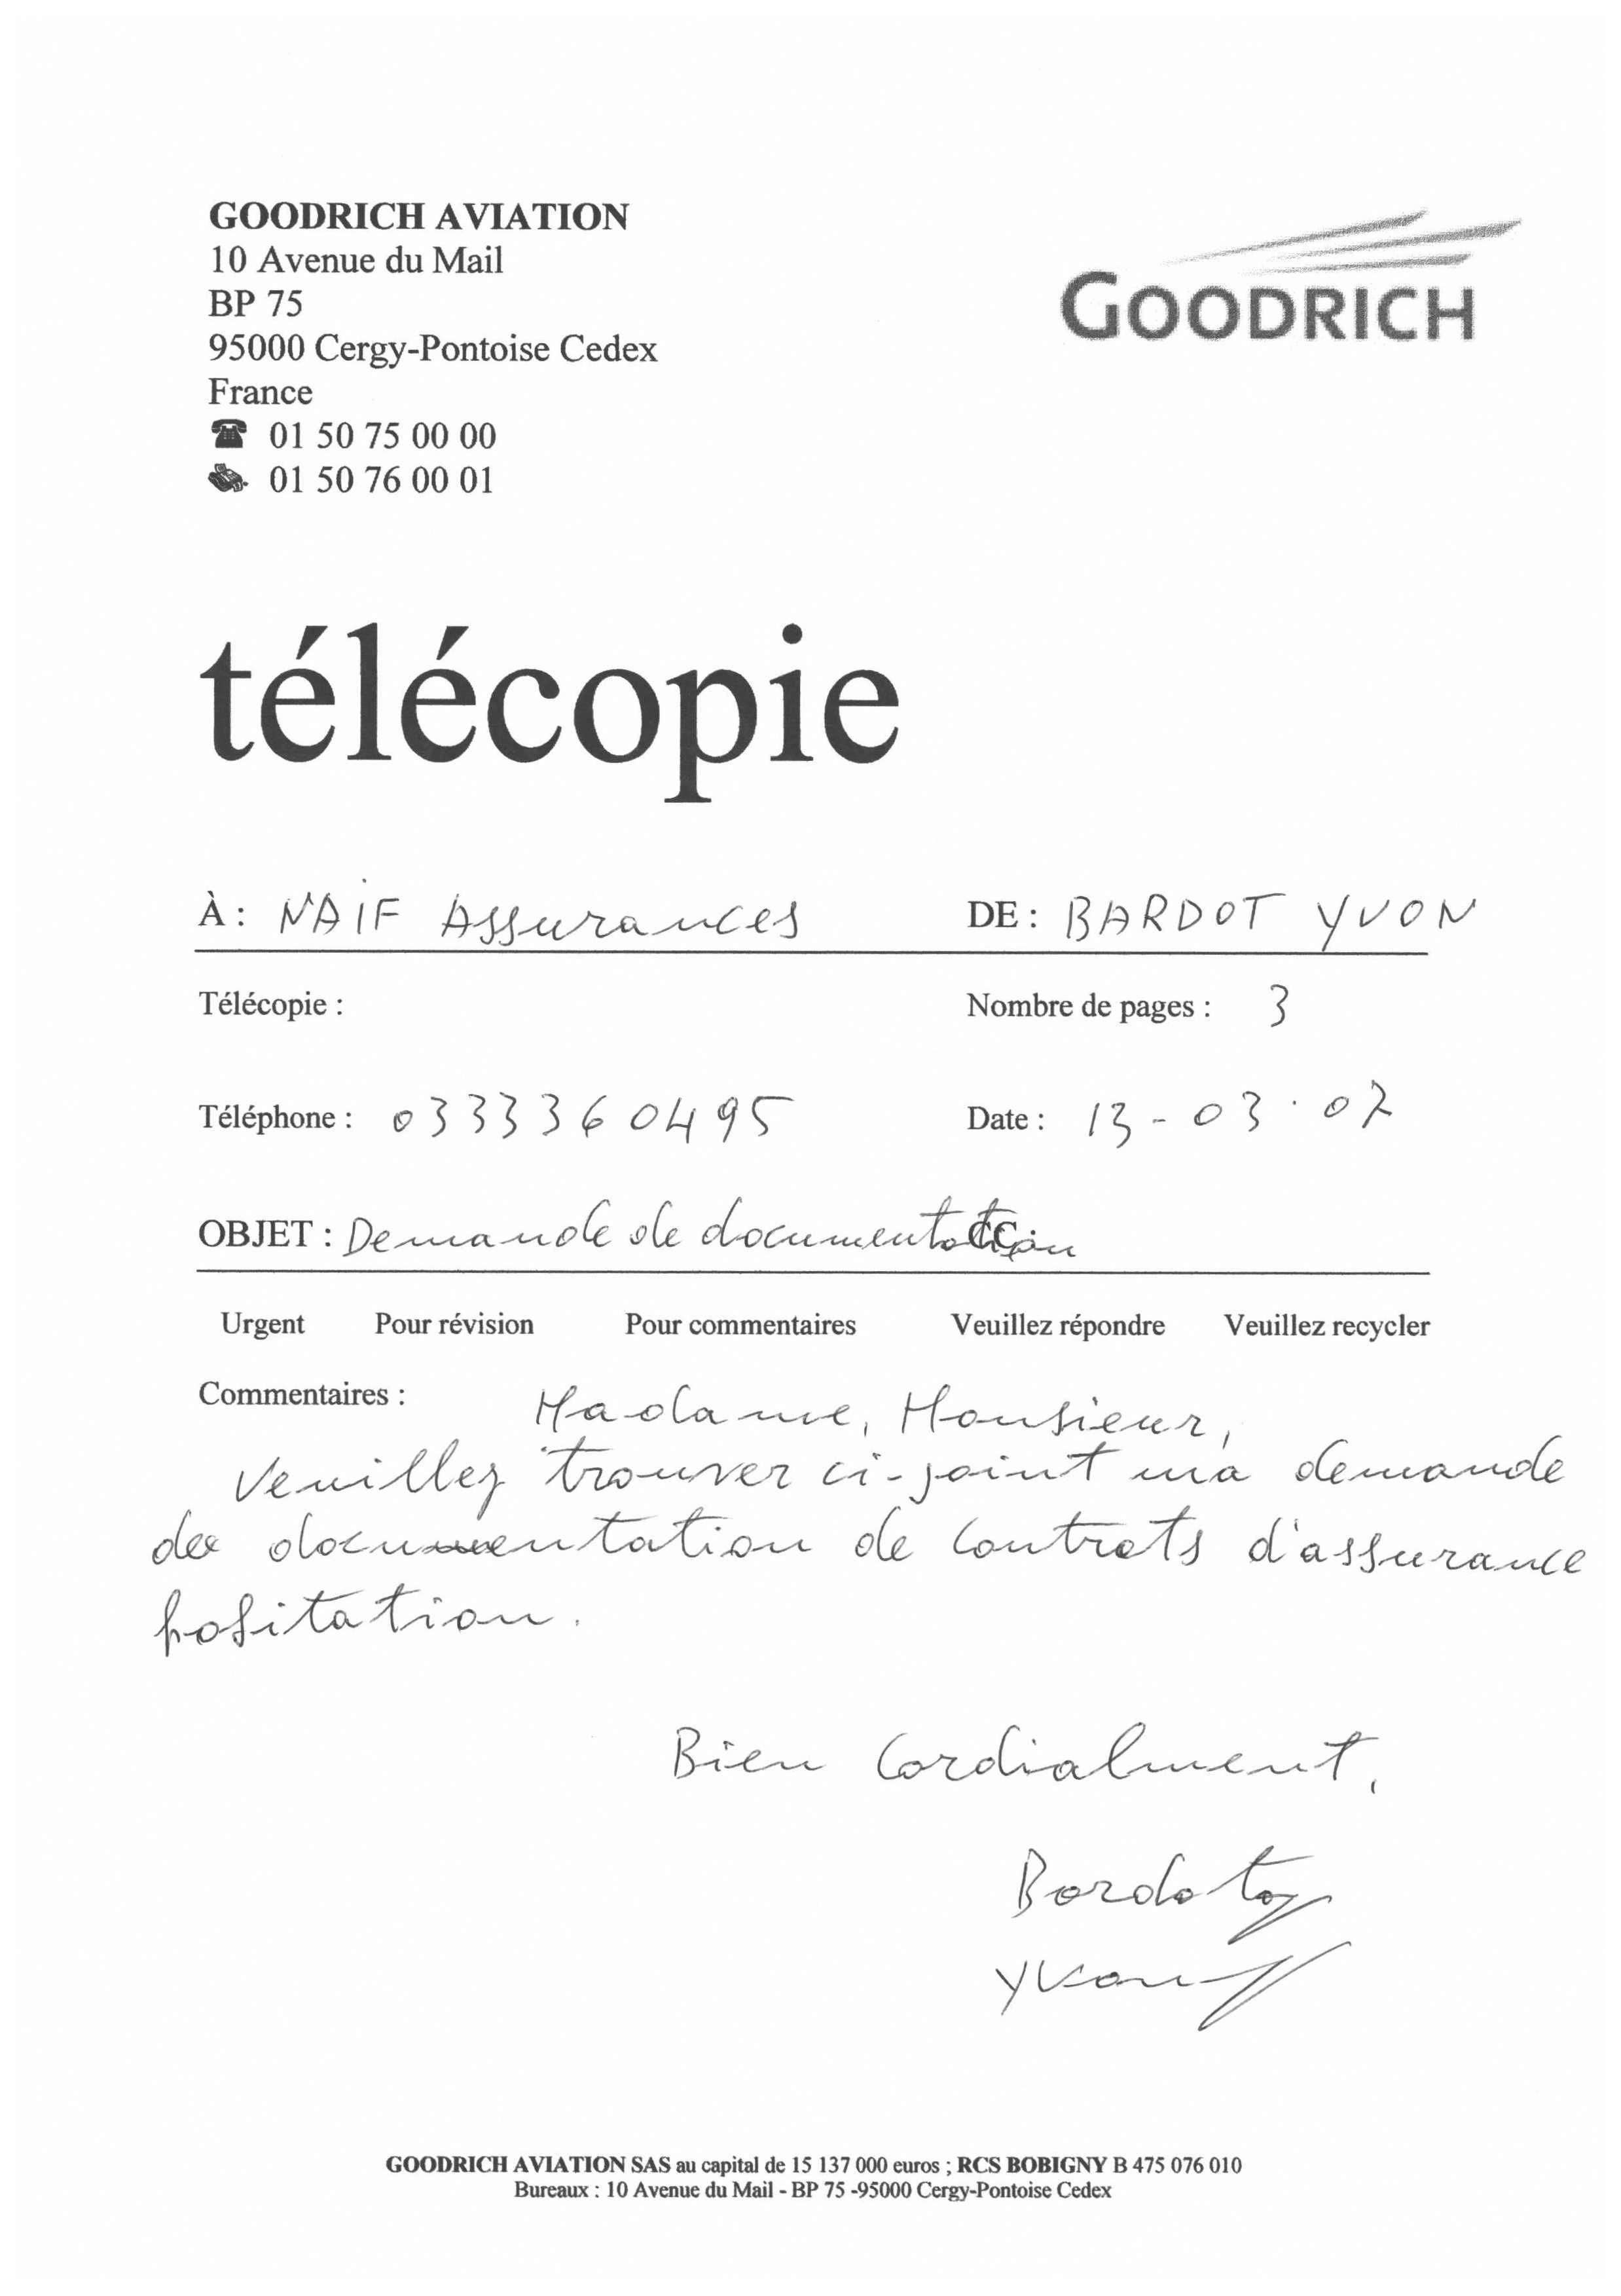 GOODRICH AVIATION
10 Avenue du Mail
BP 75
95000 Cergy-Pontoise Cedex
France
01 50 75 00 00
01 50 76 00 01
GOODRICH
télécopie
À : NAIF Assurances DE : BARDOT YVON
Télécopie : Nombre de pages : 3
Téléphone : 0333360495 Date : 13-03-07
OBJET : Demande de documentation CC :
Urgent Pour révision Pour commentaires Veuillez répondre Veuillez recycler
Commentaires : Madame, Monsieur,
Veuillez trouver ci-joint ma demande
de documentation de contrats d'assurance
habitation.
Bien Cordialment,
Bardot
Yvon
GOODRICH AVIATION SAS au capital de 15 137 000 euros ; RCS BOBIGNY B 475 076 010
Bureaux : 10 Avenue du Mail - BP 75 -95000 Cergy-Pontoise Cedex